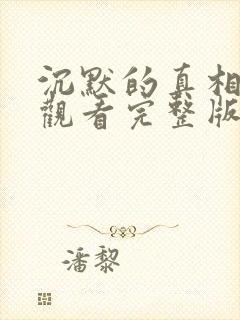 沉默的真相
觀看完整版
潘黎